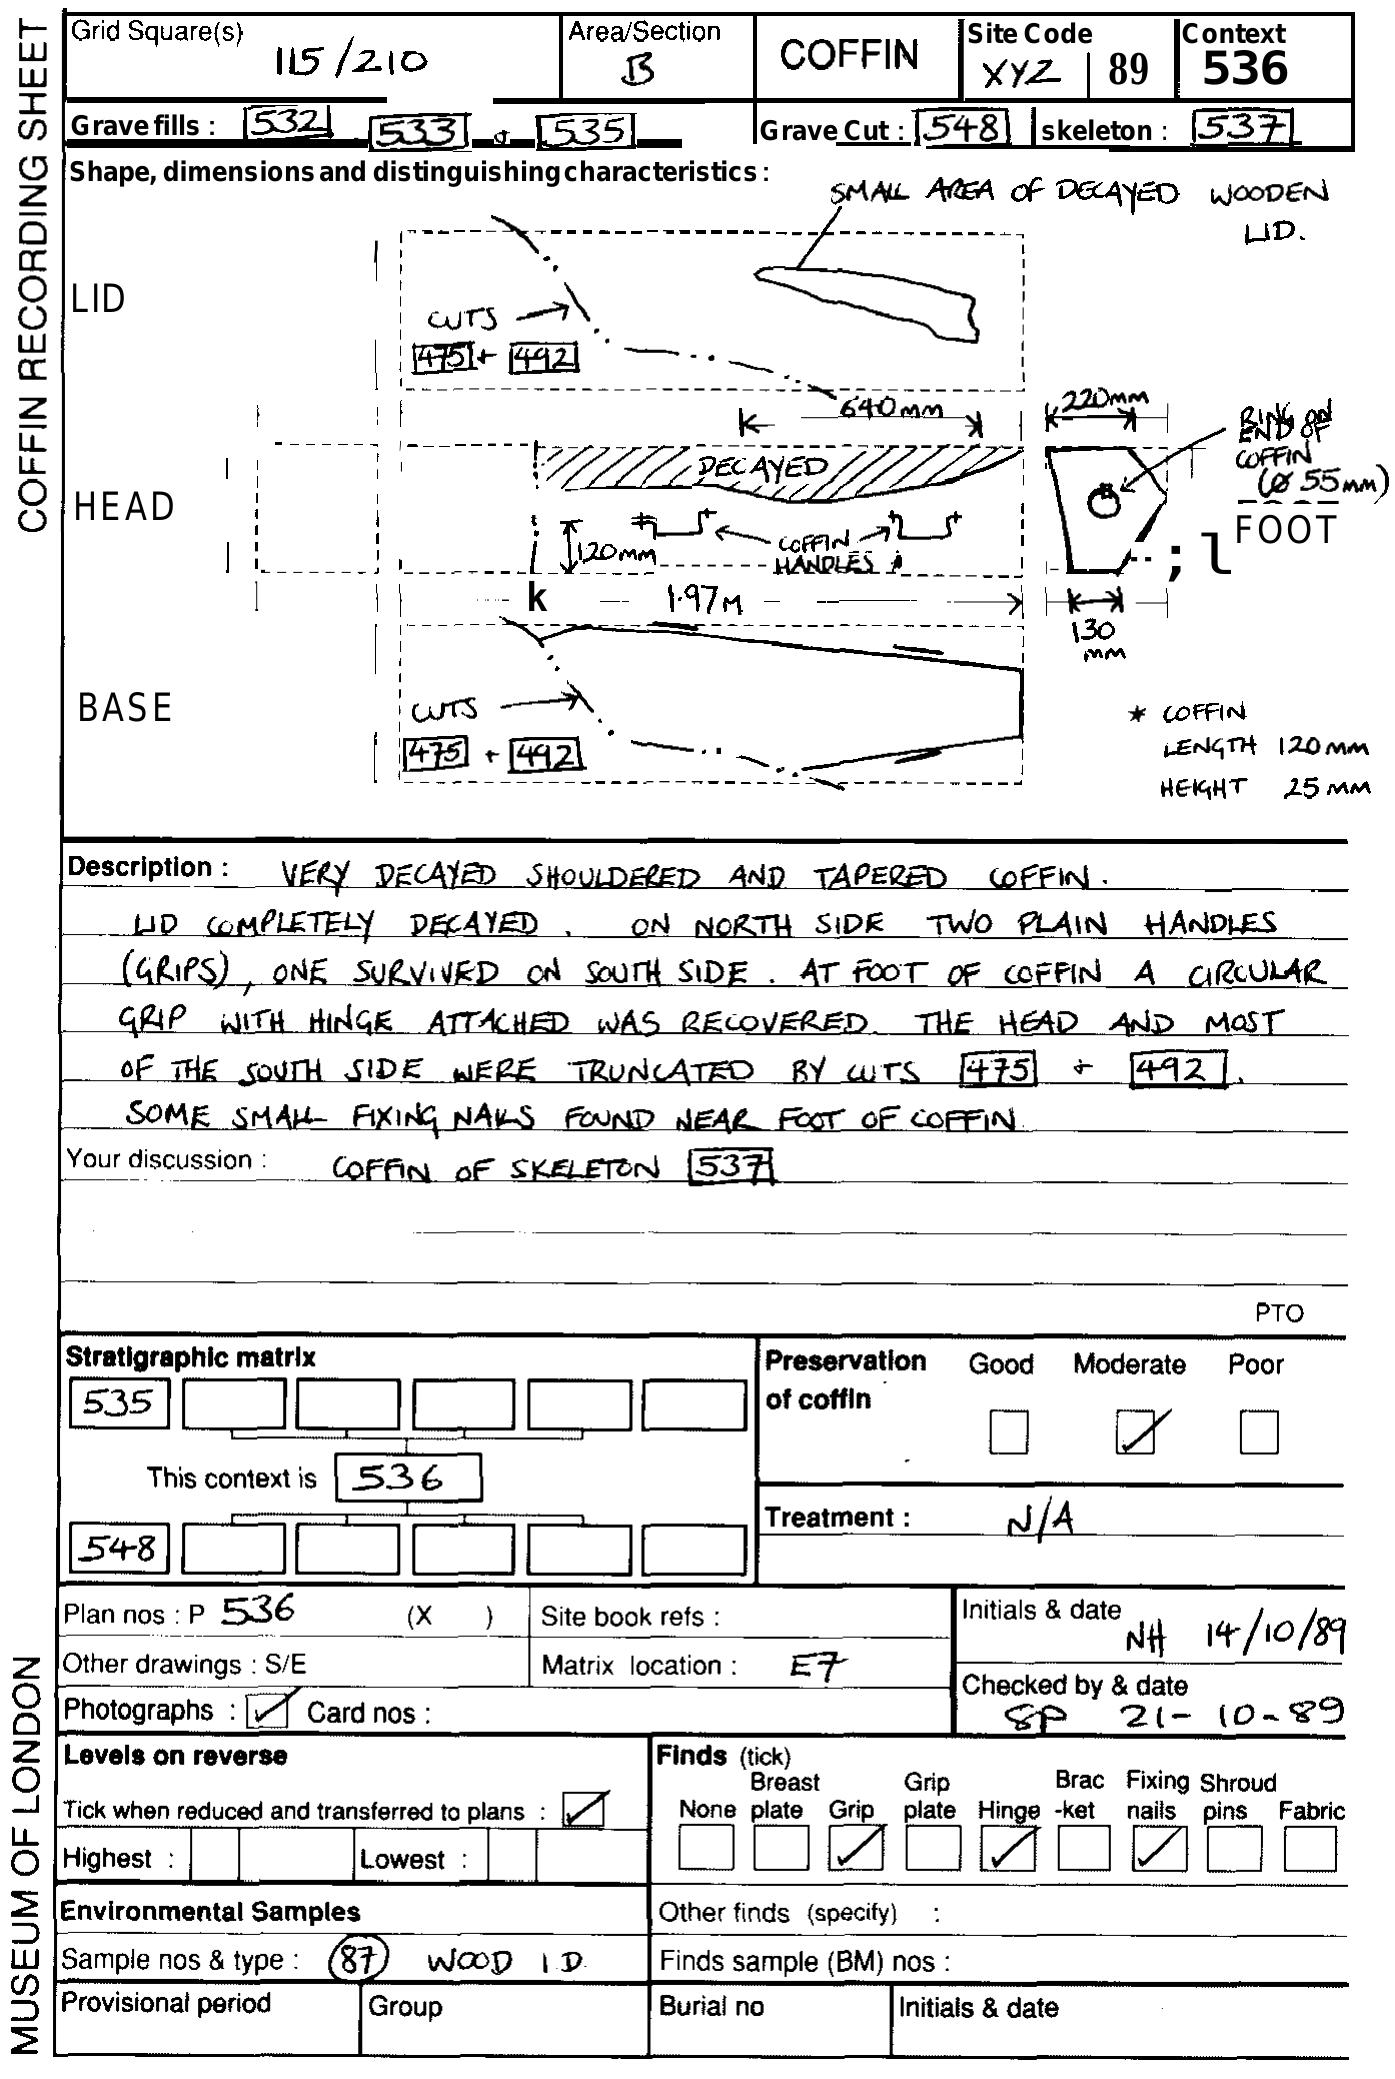 COFFIN RECORDING SHEET
Grid Square(s) 115/210 Area/Section B COFFIN Site Code XYZ 89 Context 536
Grave fills : 532 533 & 535 Grave Cut : 548 skeleton : 537
Shape, dimensions and distinguishing characteristics :
SMALL AREA OF DECAYED WOODEN
LID.
LID
CUTS
475 + 492
640mm
220mm
RING ON
END OF
COFFIN
(Ø 55mm)
DECAYED
HEAD
FOOT
120mm
COFFIN
HANDLES
;l
k 1.97M
130
mm
BASE
CUTS
475 + 492
* COFFIN
LENGTH 120mm
HEIGHT 25mm
Description : VERY DECAYED SHOULDERED AND TAPERED COFFIN.
LID COMPLETELY DECAYED. ON NORTH SIDE TWO PLAIN HANDLES
(GRIPS), ONE SURVIVED ON SOUTH SIDE. AT FOOT OF COFFIN A CIRCULAR
GRIP WITH HINGE ATTACHED WAS RECOVERED. THE HEAD AND MOST
OF THE SOUTH SIDE WERE TRUNCATED BY CUTS 475 + 492.
SOME SMALL FIXING NAILS FOUND NEAR FOOT OF COFFIN
Your discussion : COFFIN OF SKELETON 537
PTO
Stratigraphic matrix
535
This context is 536
548
Preservation Good Moderate Poor
of coffin
Treatment : N/A
Plan nos : P 536 (X ) Site book refs :
Other drawings : S/E Matrix location : E7
Photographs : Card nos :
Initials & date
NH 14/10/89
Checked by & date
SP 21-10-89
Levels on reverse
Tick when reduced and transferred to plans :
Highest : Lowest :
Finds (tick)
Breast Grip Brac Fixing Shroud
None plate Grip plate Hinge -ket nails pins Fabric
Environmental Samples
Sample nos & type : 87 WOOD I.D.
Other finds (specify) :
Finds sample (BM) nos :
Provisional period Group Burial no Initials & date
MUSEUM OF LONDON